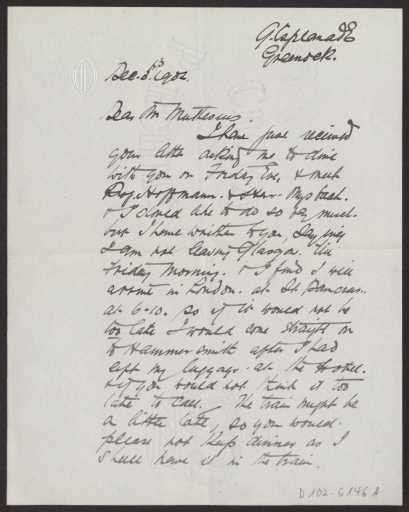 9. Esplanade
Greenock.
Dec. 5th 1902
Dear Mr Muthesius.
I have just received
your letter asking me to dine
with you on Friday Eve, & meet
Prof. Hoffmann. &
& I should like to do so very much.
but I have written to you, saying
I am not leaving Glasgow. till
Friday Morning. & I find I will
arrive in London. at St Pancras.
at 6-10. so if it would not be
too late I would come straight on
to Hammersmith after I had
left my luggage at the Hotel.
& if you would not think it too
late to call. The train might be
a little late, so you would
please not keep dinner as I
shall have it in the train.
D 102-6146 A